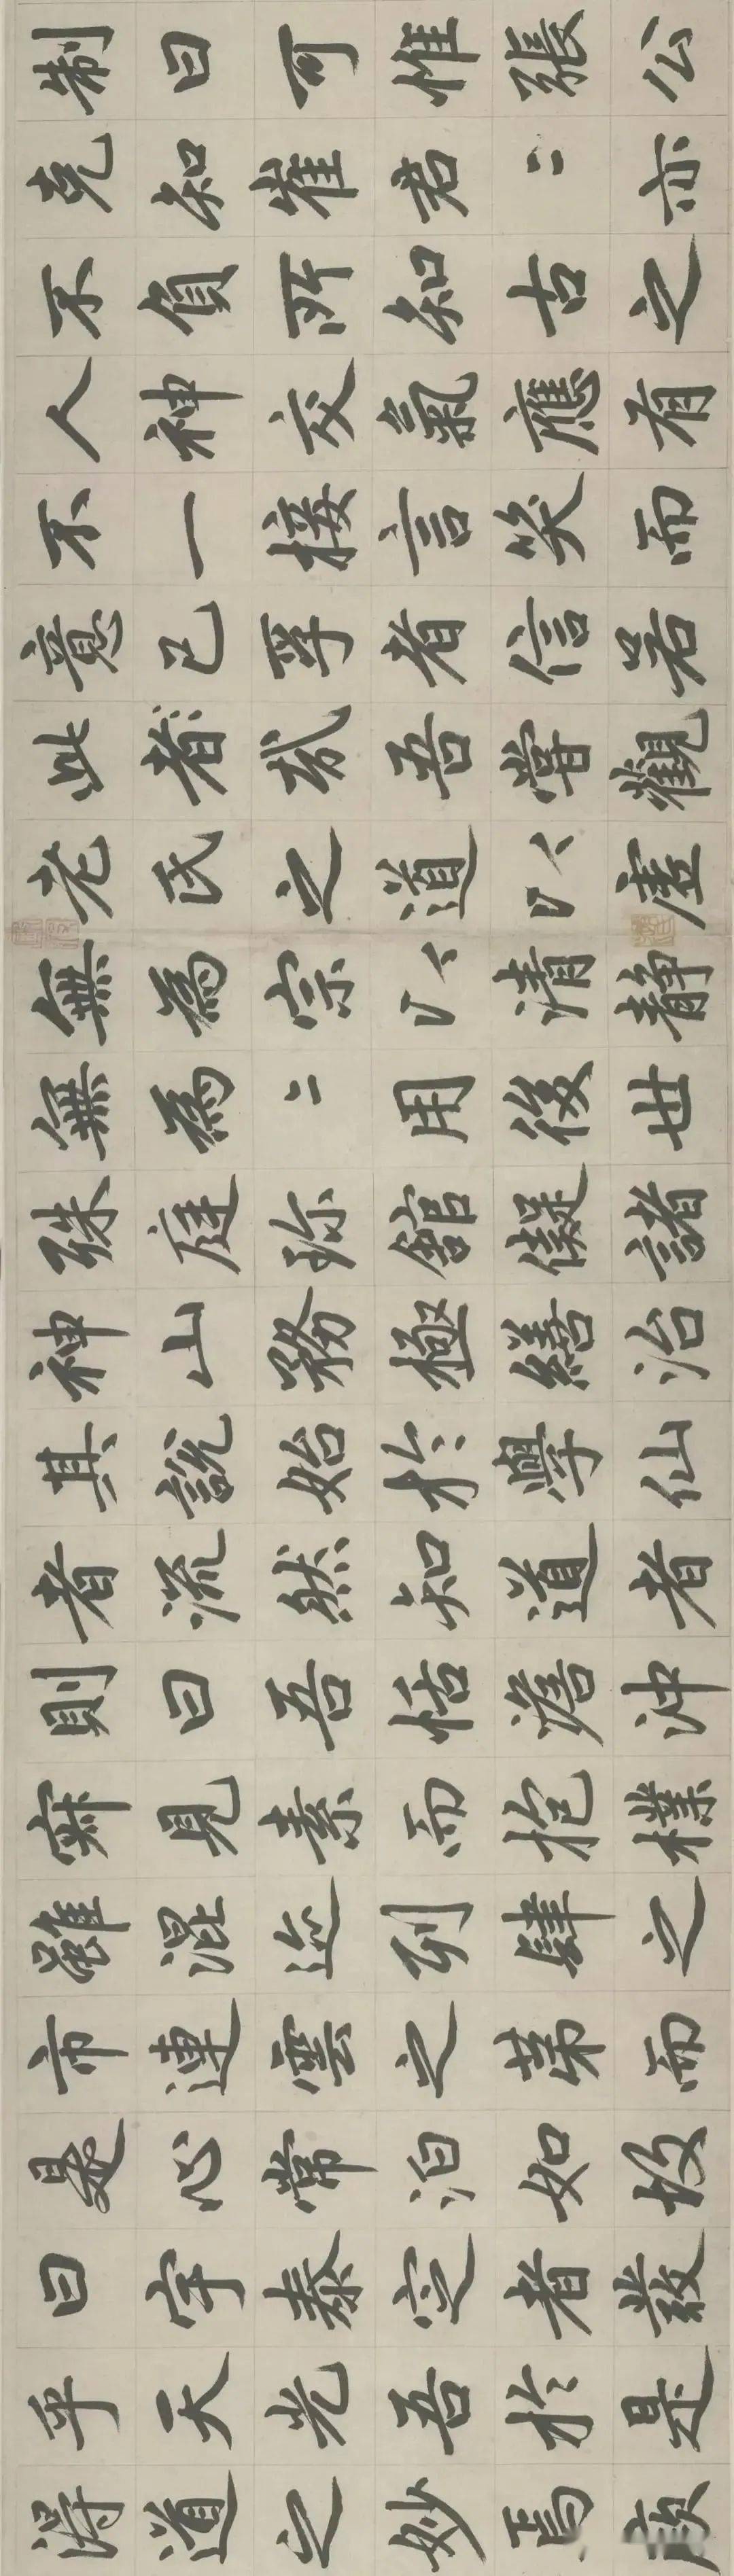 制曰可惟張公
克知崔君〻亦
不負所知古之
人神交氣應有
不一接言笑而
意已孚者信若
此者哉吾嘗觀
老氏之道以虛
無為宗以清靜
無為〻用後世
殊庭珍館儗諸
神山務極繕治
其說始於學仙
者流然知道者
則曰吾恬澹沖
寂見素而抱樸
雖混迹列肆之
市連雲之第而
是心常泊如故
曰宇泰定者發
乎天光吾於是
得道之妙焉